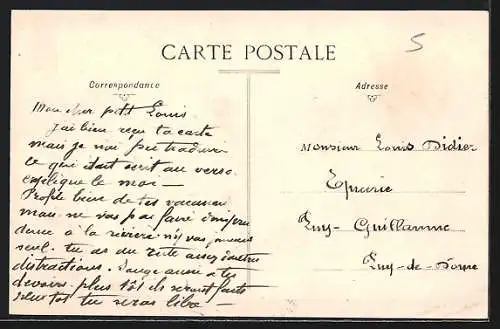 5
CARTE POSTALE
Correspondance
Adresse
Mon cher petit Louis
J'ai bien reçu ta carte
mais je n'ai pu traduire
ce qui était écrit au verso
explique le moi —
Profite bien de tes vacances
mais ne vas pas faire d'impru
dence à la rivière n'y vas jamais
seul. tu as du reste assez d'autres
distractions. Songe aussi à tes
devoirs. plus tôt ils seront faits
plus tôt tu seras libre —
Monsieur Louis Didier
Epicerie
Puy-Guillaume
Puy-de-Dôme